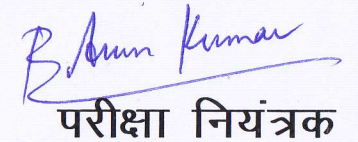 B. Arun Kumar
परीक्षा नियंत्रक